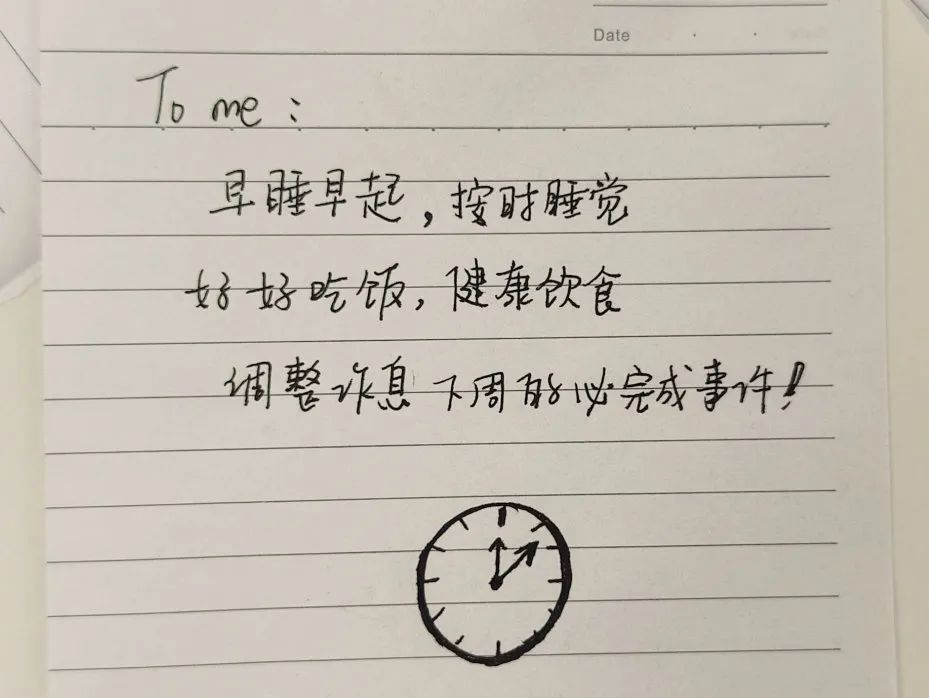 Date
To me:
早睡早起,按时睡觉
好好吃饭,健康饮食
调整诈息 下周的必完成事件!